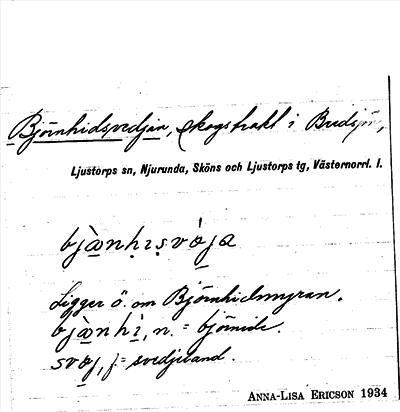 Björnhidsvedjan, skogstrakt i Bredsjön,
Ljustorps sn, Njurunda, Sköns och Ljustorps tg, Västernorrl. l.
Ligger ö. om Björnhidmyran.
n. = björnide.
f. = svedjeland.
ANNA-LISA ERICSON 1934